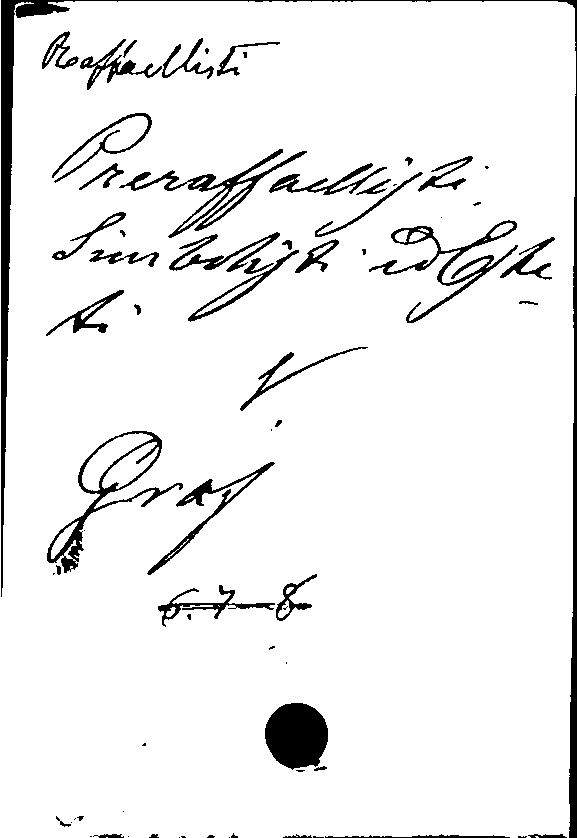 Raffaellisti
Preraffaellisti
Simbolisti ed Este
ti
V.
Graf
6. 7 8